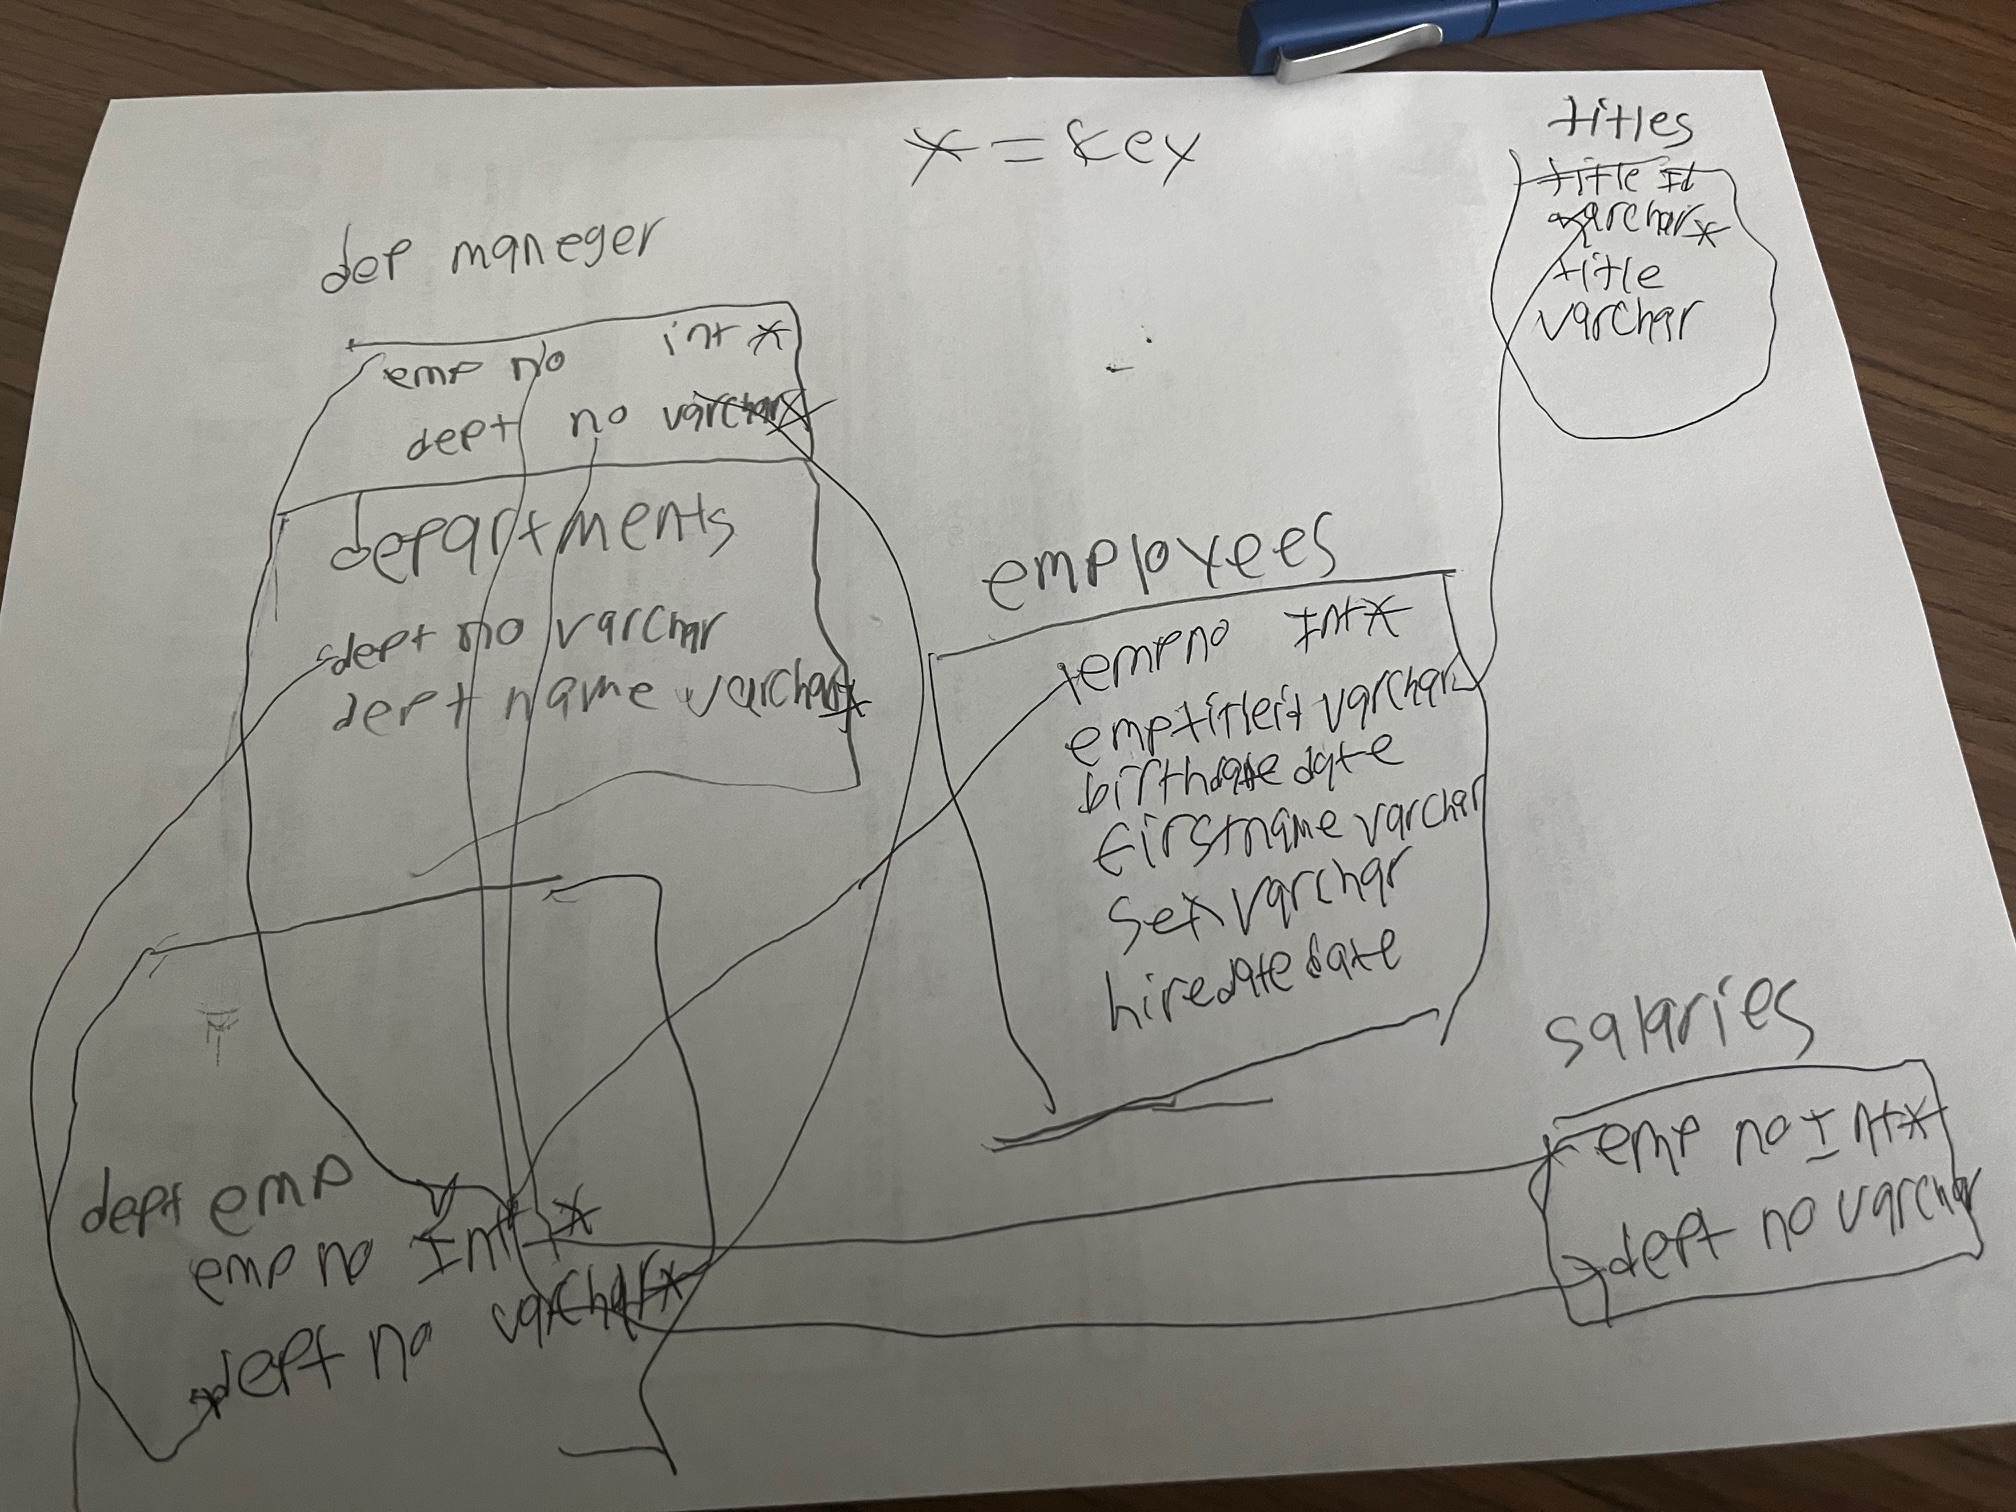 x = key
dep maneger
emp no int *
dept no varchar*
departments
dept no varchar
dept name varchar*
dept emp
emp no Int *
dept no varchar*
employees
emp no Int*
birthdate date
firstname varchar
sex varchar
hiredate date
titles
title Id
varchar*
title
varchar
salaries
emp no Int*
dept no varchar